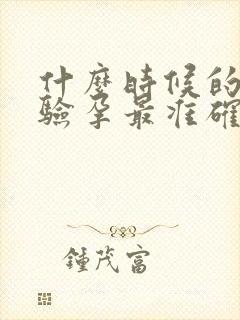 什麼時候的
驗孕最准確
鍾茂富